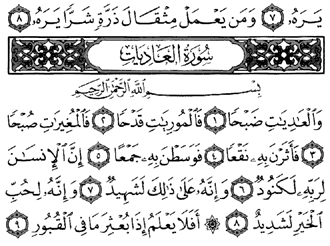 يَرَهُۥ ٧ وَمَن يَعْمَلْ مِثْقَالَ ذَرَّةٍ شَرًّا يَرَهُۥ ٨
سُورَةُ الْعَادِيَاتِ
بِسْمِ اللَّهِ الرَّحْمَٰنِ الرَّحِيمِ
وَالْعَٰدِيَٰتِ ضَبْحًا ١ فَالْمُورِيَٰتِ قَدْحًا ٢ فَالْمُغِيرَٰتِ صُبْحًا
٣ فَأَثَرْنَ بِهِۦ نَقْعًا ٤ فَوَسَطْنَ بِهِۦ جَمْعًا ٥ إِنَّ الْإِنسَٰنَ
لِرَبِّهِۦ لَكَنُودٌ ٦ وَإِنَّهُۥ عَلَىٰ ذَٰلِكَ لَشَهِيدٌ ٧ وَإِنَّهُۥ لِحُبِّ
الْخَيْرِ لَشَدِيدٌ ٨ ۞ أَفَلَا يَعْلَمُ إِذَا بُعْثِرَ مَا فِي الْقُبُورِ ٩